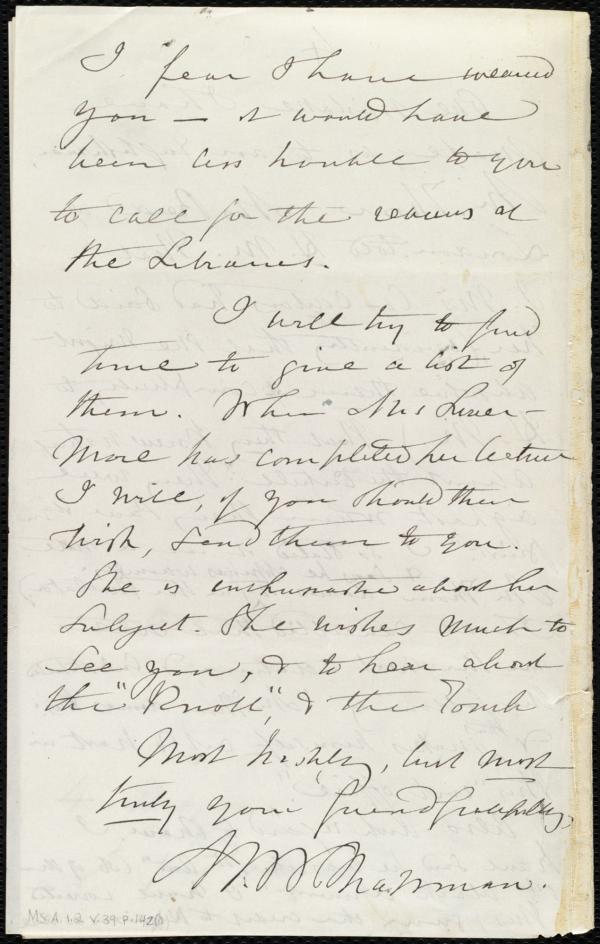 I fear I have wearied
you — it would have
been less trouble to you
to call for the reviews at
the Libraries.
I will try to find
time to give a list of
them. When Mrs Liver-
more has completed her lecture
I will, if you should then
wish, send them to you.
She is enthusiastic about her
subject. She wishes much to
see you, & to hear about
the "Knoll", & the Tomb
Most hastily, but most
truly your friend gratefully,
M. W. Chapman.
Ms. A. 1. 2 v. 39. p. 142